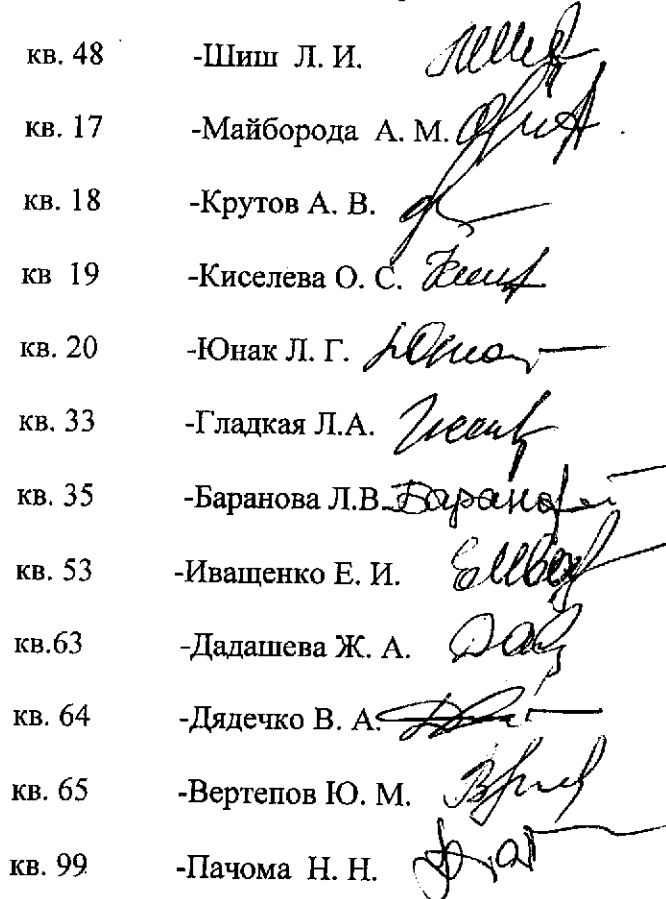 кв. 48 -Шиш Л. И.
кв. 17 -Майборода А. М.
кв. 18 -Крутов А. В.
кв 19 -Киселева О. С.
кв. 20 -Юнак Л. Г.
кв. 33 -Гладкая Л.А.
кв. 35 -Баранова Л.В.
кв. 53 -Иващенко Е. И.
кв.63 -Дадашева Ж. А.
кв. 64 -Дядечко В. А.
кв. 65 -Вертепов Ю. М.
кв. 99 -Пачома Н. Н.